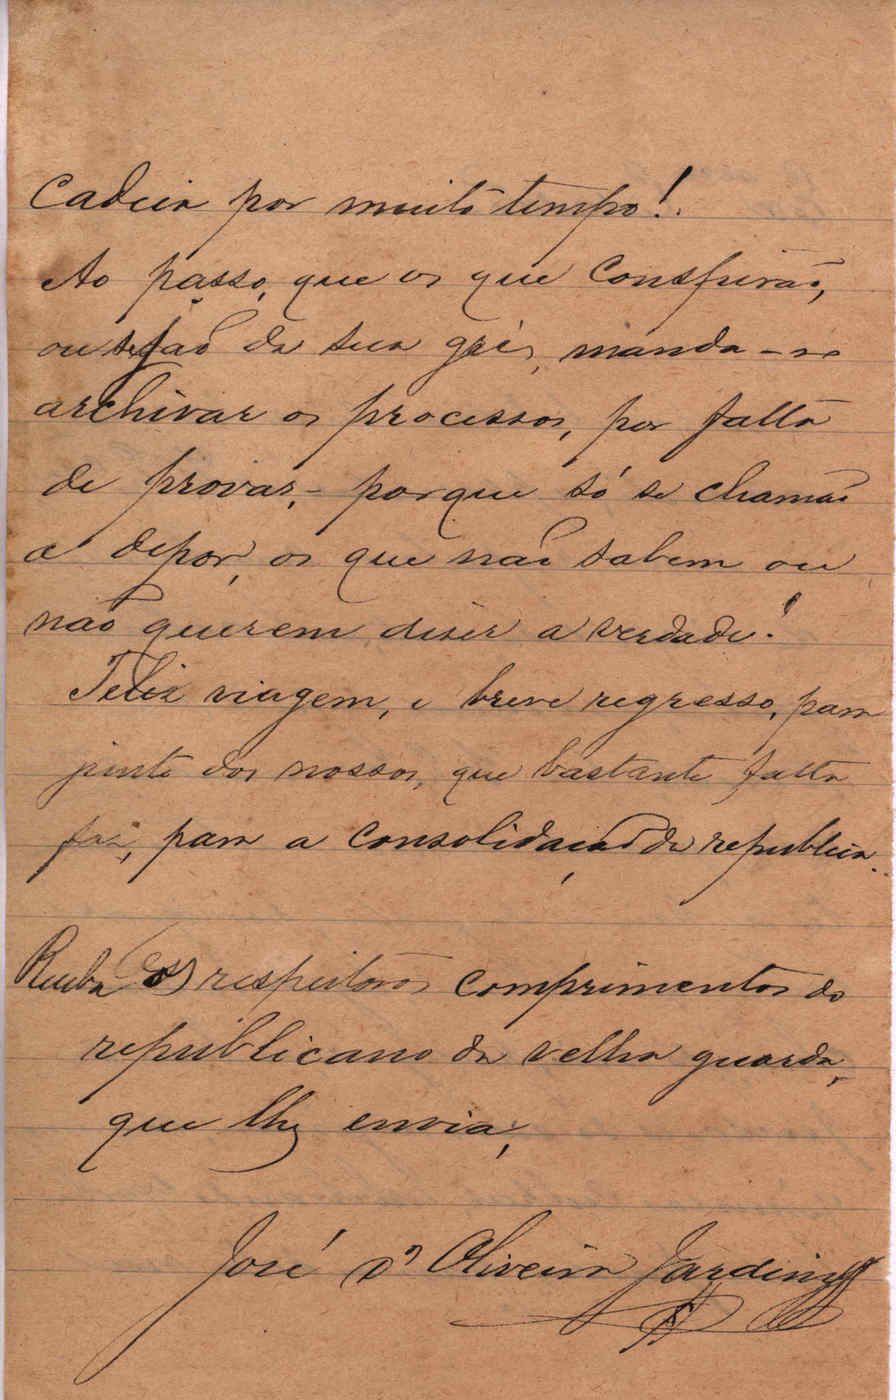 Cadeia por muito tempo!
Ao passo, que os que conspirão,
ou sejão da sua grei, manda-se
archivar os processos, por falta
de provas, - porque só se chamão
a depor, os que não sabem ou
não querem diser a verdade!
Feliz viagem, e breve regresso, para
junto dos nossos, que bastante falta
faz, para a consolidação da republica.
Receba os respeitosos comprimentos do
republicano da velha guarda,
que lhe envia,
José d' Oliveira Jardim